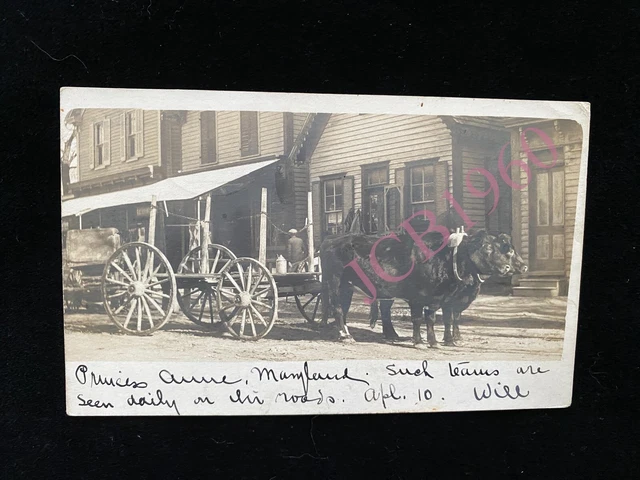 JCB1960
Princess Anne, Maryland. Such teams are
seen daily on his roads. Apl. 10. Will